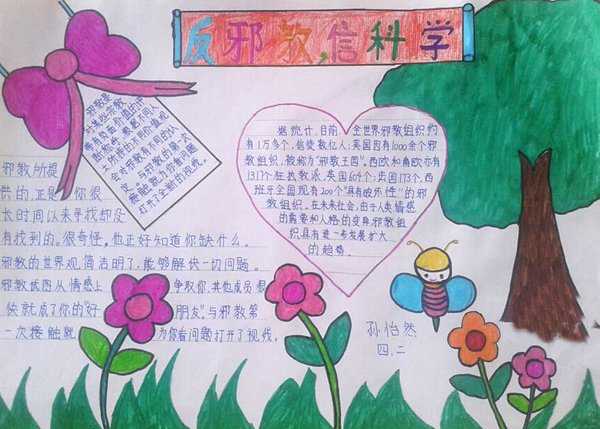 反邪教,信科学
邪教是
对某些宗教
带有负面价值的评
断的称呼。根据不同人
士所站的不同价值观
会对邪教有不同的认
定。与邪教第一次
接触就为你看问题
打开了全新的视线。
据统计,目前,全世界邪教组织约
有1万多个,信徒数亿人;英国四有1000余个邪
教组织,被称为"邪教王国"。西欧和南欧亦有
1317个狂热教派,英国604个;法国173个,西
班牙全国现有200个"具有破坏性"的邪
教组织。在未来社会,由于人类情感
的需要和人格的变异邪教组
织具有进一步发展扩大
的趋势。
邪教所提
供的,正是你很
长时间以来寻找却没
有找到的。很奇怪,他正好知道你缺什么。
邪教的世界观简洁明了,能够解快一切问题。
邪教试图从情感上争取你,其他成员很
快就成了你的"好朋友"。与邪教第
一次接触就为你看问题打开了视线。
孙怡然
四、二